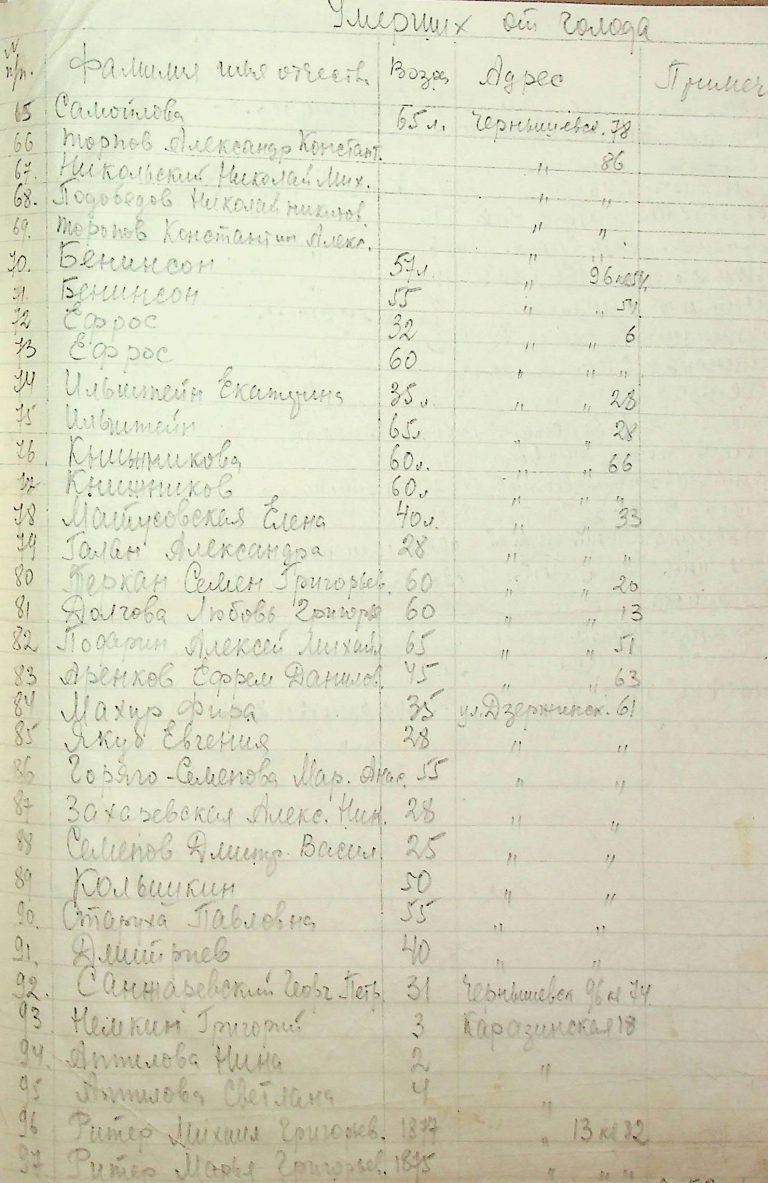 Умерших от голода
№ п/п. Фамилия имя отчеств Возра Адрес Примеч
65 Самойлова 65 л. Чернышевск. 78
66 Торпов Александр Констант. " 86
67. Никольский Николай Мих. " "
68. Подобедов Николай " "
69. Торопов Константин Алекс. " "
70. Бенинсон 57 л " 96
71. Бенинсон 55 " " 54
72 Ефрос 32 " " 6
73 Ефрос 60 " " "
74 Ильштейн Екатерина 35 л " " 28
75 Ильштейн 65 л " " 28
76 Книжникова 60 л. " " 66
77 Книжников 60 л " " "
78 Матусовская Елена 40 л. " " 33
79 Галан Александра 28 " " "
80 Теркан Семен Григорьев. 60 " " 20
81 Долгова Любовь Григорье 60 " " 13
82 Подарин Алексей Михайл 65 " " 51
83 Аренков Ефрем Данилов. 45 " " 63
84 Махир Фира 35 ул. Дзержинск. 61
85 Якуб Евгения 28 " "
86 Горяго-Семенова Мар. Анас. 55 " "
87 Захаревская Алекс. Ник. 28 " "
88 Семенов Дмитр. Васил. 25 " "
89 Колышкин 50 " "
90. Старуха Павловна 55 " "
91. Дмитриев 40 " "
92. Санжаревский Георг. Петр 31 Чернышевск 96 кв 74
93. Немкин Григорий 3 Каразинская 18
94. Аптилова Нина 2 "
95 Аптилова Светлана 4 "
96 Ритер Михаил Григорьев. 1877 " 13 кв 82
97. Ритер Марья Григорьев. 1875 " " "